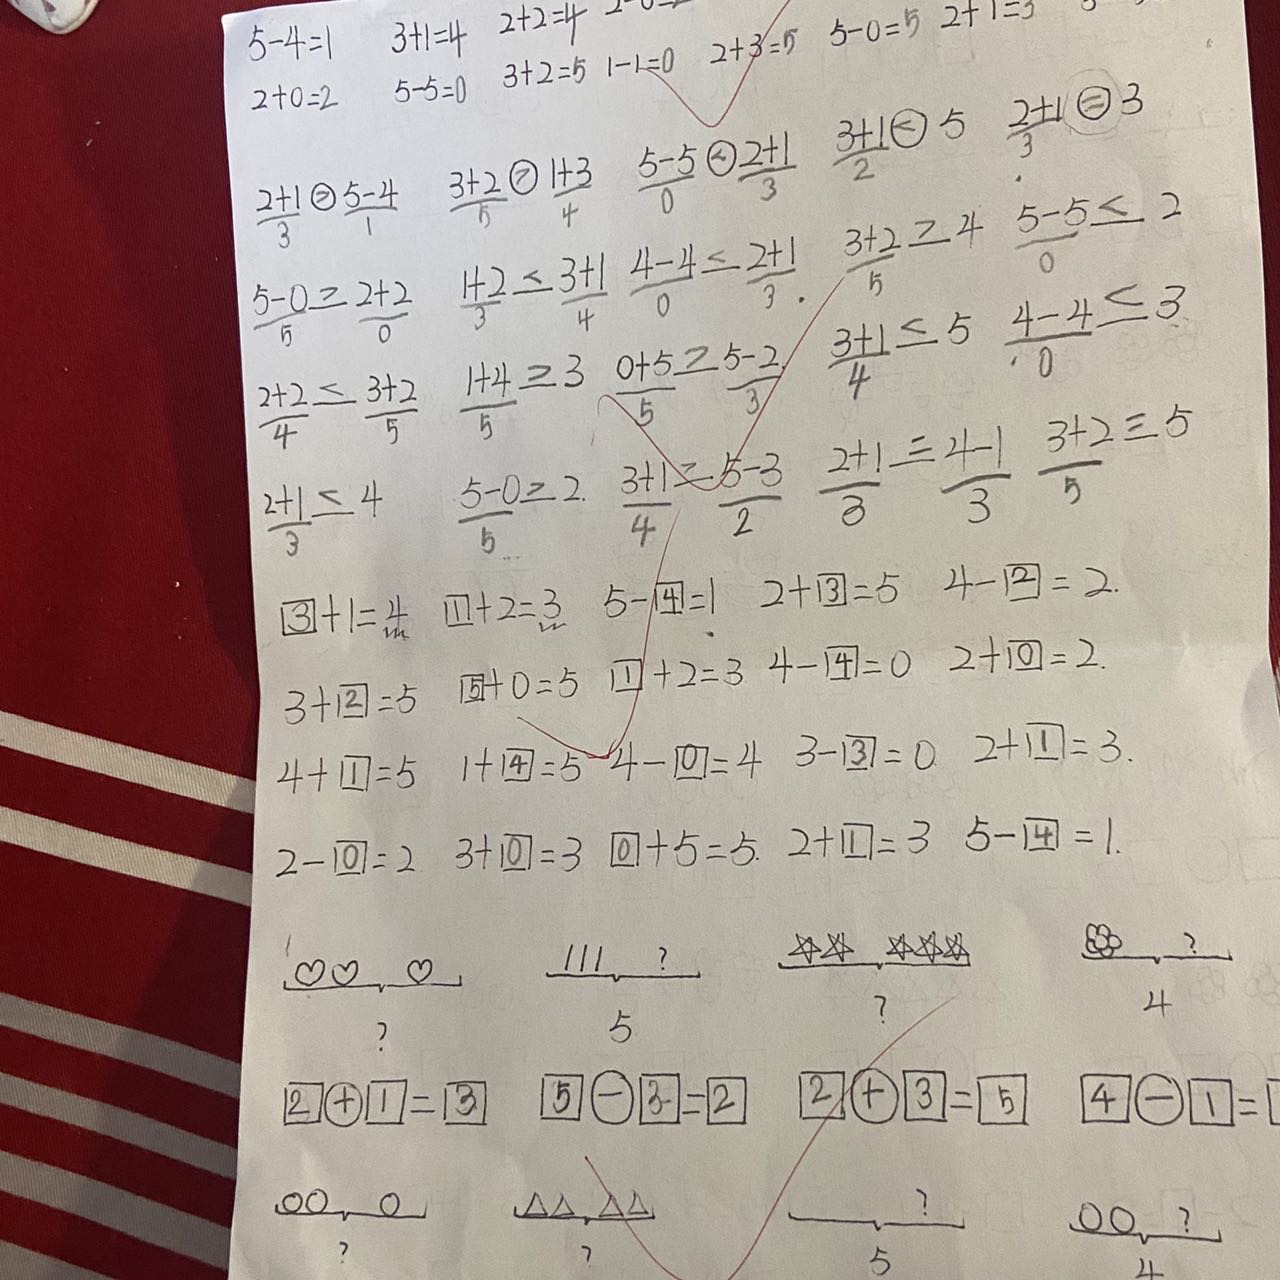 5-4=1 3+1=4 2+2=4 2+1=3
2+0=2 5-5=0 3+2=5 1-1=0 2+3=5 5-0=5
2+1>5-4 3+2>1+3 5-5<2+1 3+1<5 2+1=3
3 1 5 4 0 3 2 3
5-0>2+2 1+2<3+1 4-4<2+1 3+2>4 5-5<2
5 0 3 4 0 3 5 0
2+2<3+2 1+4>3 0+5>5-2 3+1<5 4-4<3
4 5 5 5 3 4 0
2+1<4 5-0>2 3+1>5-3 2+1=4-1 3+2=5
3 5 4 2 3 3 5
3+1=4 1+2=3 5-4=1 2+3=5 4-2=2.
3+2=5 5+0=5 1+2=3 4-4=0 2+0=2.
4+1=5 1+4=5 4-0=4 3-3=0 2+1=3.
2-0=2 3+0=3 0+5=5. 2+1=3 5-4=1.
? ?
? 5 ? 4
2+1=3 5-3=2 2+3=5 4-1=
? ?
? ? 5 4